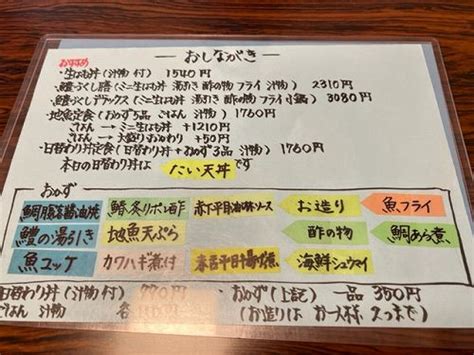 — おしながき —
おすすめ
・生はも丼(汁物付) 1540円
・鱧づくし膳(ミニ生はも丼 湯引き 酢の物 フライ 汁物) 2310円
・鱧づくしデラックス(ミニ生はも丼 湯引き 酢の物 フライ 小鍋) 3080円
・地魚定食(おかず5品 ごはん 汁物) 1760円
ごはん → ミニ生はも丼 +1210円
ごはん → 大盛りおかわり +50円
・日替わり丼定食(日替わり丼+おかず3品 汁物) 1760円
本日の日替わり丼は たい天丼 です
おかず
鱧の湯引き 地魚天ぷら 酢の物 鯛あら煮
魚ユッケ カワハギ煮付 海鮮シュウマイ
お造り 魚フライ
日替わり丼(汁物付) 770円 おかず(上記)一品 350円
ごはん 汁物 各 (お造りは お一人様 2つまで)